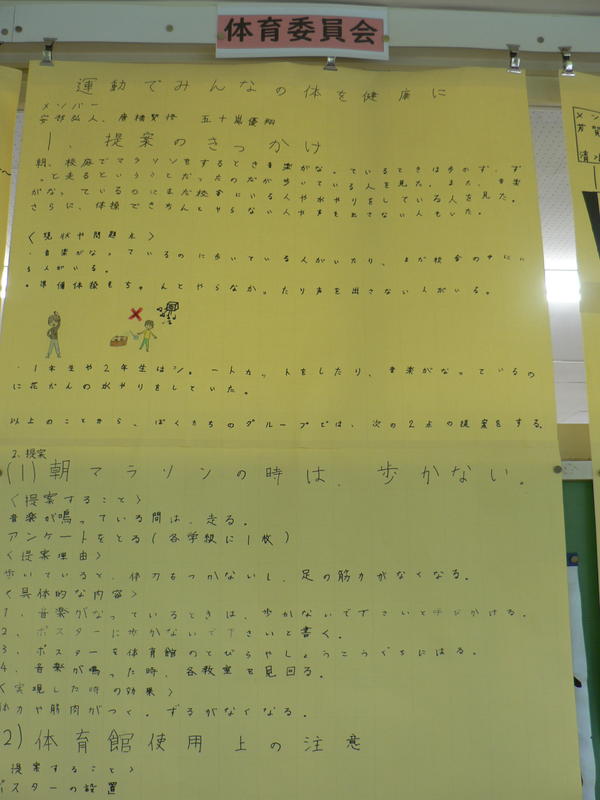 体育委員会
運動でみんなの体を健康に
メンバー
五十嵐優翔
1. 提案のきっかけ
朝、校庭でマラソンをするとき音楽がなっているときは歩かず、ず
っと走るということだったのだが歩いている人を見た。また、音楽
がなっているのにまだ校舎にいる人や水やりをしている人を見た。
さらに、体操できちんとやらない人や声を出さない人もいた。
〈現状や問題点〉
・音楽がなっているのに歩いている人がいたり、まだ校舎の中にい
る人がいる。
・準備体操もちゃんとやらなかったり声を出さない人がいる。
・1年生や2年生はショートカットをしたり、音楽がなっているの
に花だんの水やりをしていた。
以上のことから、ぼくたちのグループでは、次の2点の提案をする。
2. 提案
(1)朝マラソンの時は、歩かない。
〈提案すること〉
音楽が鳴っている間は、走る。
アンケートをとる(各学級に1枚)
〈提案理由〉
歩いていると、体力もつかないし、足の筋力がなくなる。
〈具体的な内容〉
1. 音楽がなっているときは、歩かないで下さいとよびかける。
2. ポスターに歩かないで下さいと書く。
3. ポスターを体育館のとびらやしょうこうぐちにはる。
4. 音楽が鳴った時、各教室を見回る。
〈実現した時の効果〉
体力や筋肉がつく。ずるがなくなる。
2)体育館使用上の注意
提案すること〉
ポスターの設置
メン